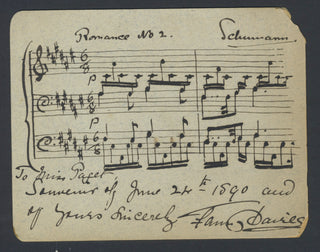 Romance No 2. Schumann.
To Miss Paget
Souvenir of June 24th 1890 and
of Yours Sincerely Fanny Davies